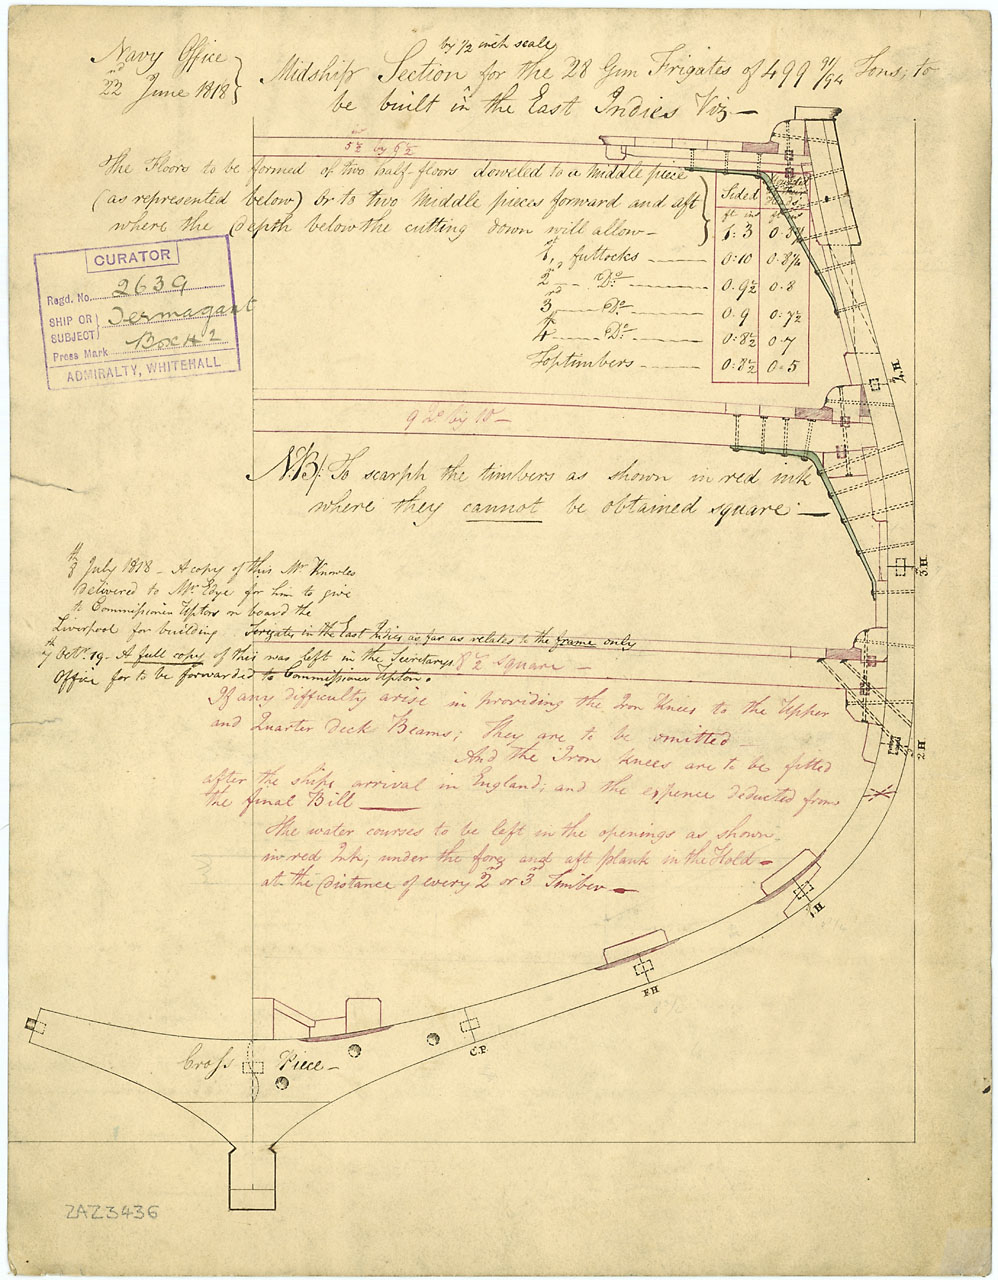 by 1/2 inch scale
Navy Office
22nd June 1818
Midship Section for the 28 Gun Frigates of 499 91/94 Tons, to
be built in the East Indies Viz—
5½ by 6½
The Floors to be formed of two half-floors doweled to a middle piece
(as represented below) or to two middle pieces forward and aft
where the depth below the cutting down will allow—
Sided
ft in
1: 3
1st futtocks 0:10 0.8¼
2nd Do 0.9½ 0.8
3rd Do 0.9 0.7½
4th Do 0:8½ 0.7
Toptimbers 0:8½ 0.5
CURATOR
Regd. No. 2639
SHIP OR SUBJECT Termagant
Press Mark Box 42
ADMIRALTY, WHITEHALL
4.H.
by 10—
NB/. To scarph the timbers as shown in red ink
where they cannot be obtained square—
3.H.
8th July 1818 - A copy of this Mr Knowles
delivered to Mr Edye for him to give
to Commissioner Upton on board the
Liverpool for building Frigates in the East Indies as far as relates to the frame only
7th Octr. 19 - A full copy of this was left in the Secretarys
Office for to be forwarded to Commissioner Upton.
8½ square—
If any difficulty arise in providing the Iron Knees to the Upper
and Quarter Deck Beams; they are to be omitted
And the Iron Knees are to be fitted
after the ships arrival in England; and the expence deducted from
the final Bill—
2.H.
The water courses to be left in the openings as shown
in red Ink, under the fore and aft plank in the Hold—
at the distance of every 2nd or 3rd Timber—
1.H.
F.H.
C.P.
Cross Piece—
ZAZ3436